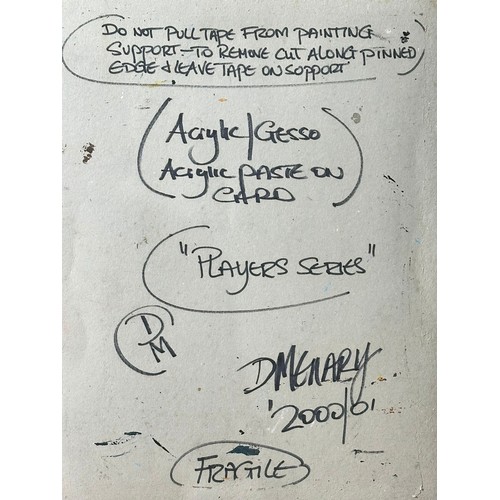 DO NOT PULL TAPE FROM PAINTING
SUPPORT - TO REMOVE CUT ALONG PINNED
EDGE & LEAVE TAPE ON SUPPORT
Acrylic/GESSO
Acrylic PASTE ON
CARD
"PLAYERS SERIES"
DM
DMENARY
'2000/01
FRAGILE